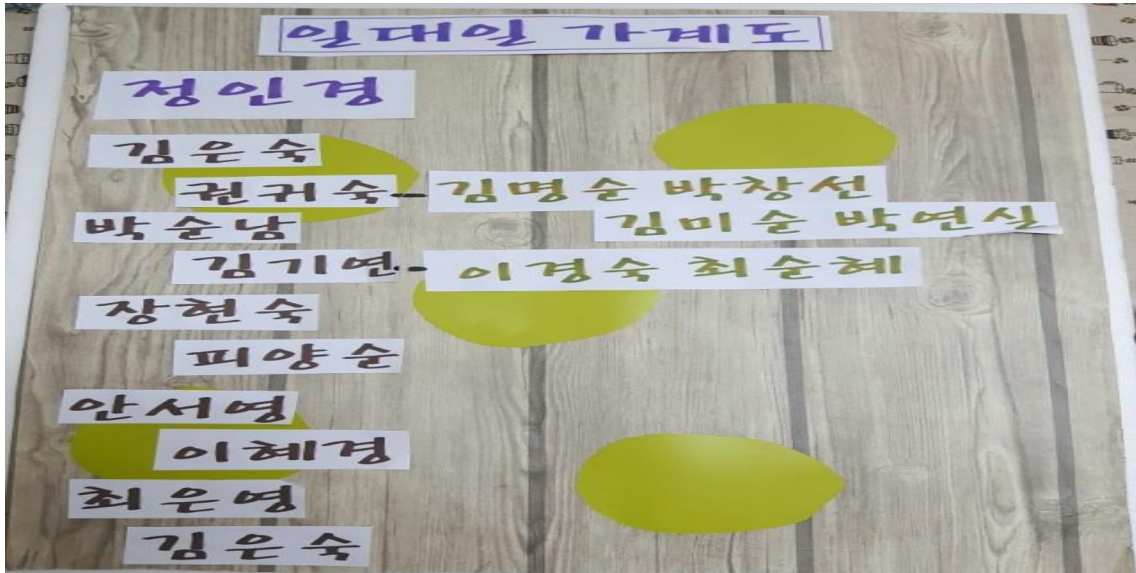 일대일 가계도
정인경
김은숙
권귀숙-김명순 박창선
박순남 김미순 박연실
김기연-이경숙 최순혜
장현숙
피양순
안서영
이혜경
최은영
김은숙